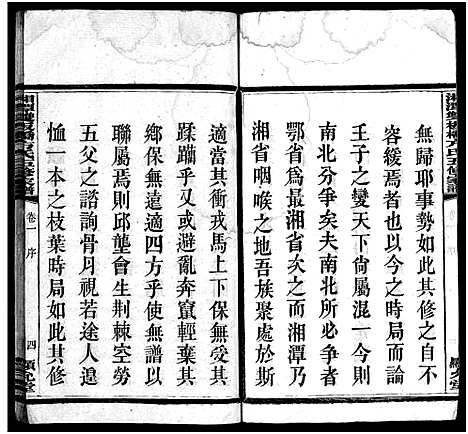 無歸耶事勢如此其修之自不
容緩焉也以今之時局而論
壬子之變天下尚屬混一今則
南北分爭矣夫南北所必爭者
鄂省為最湘省次之而湘潭乃
湘省咽喉之地吾族聚處於斯
適當其衝戎馬上下保無受其
蹂躪乎又或避亂奔竄輕棄其
鄉保無遺適四方乎使無譜以
聯屬焉則邱壟會生荊棘空勞
五父之諮詢骨月視若途人遑
恤一本之枝葉時局如此其修
卷一 序
四